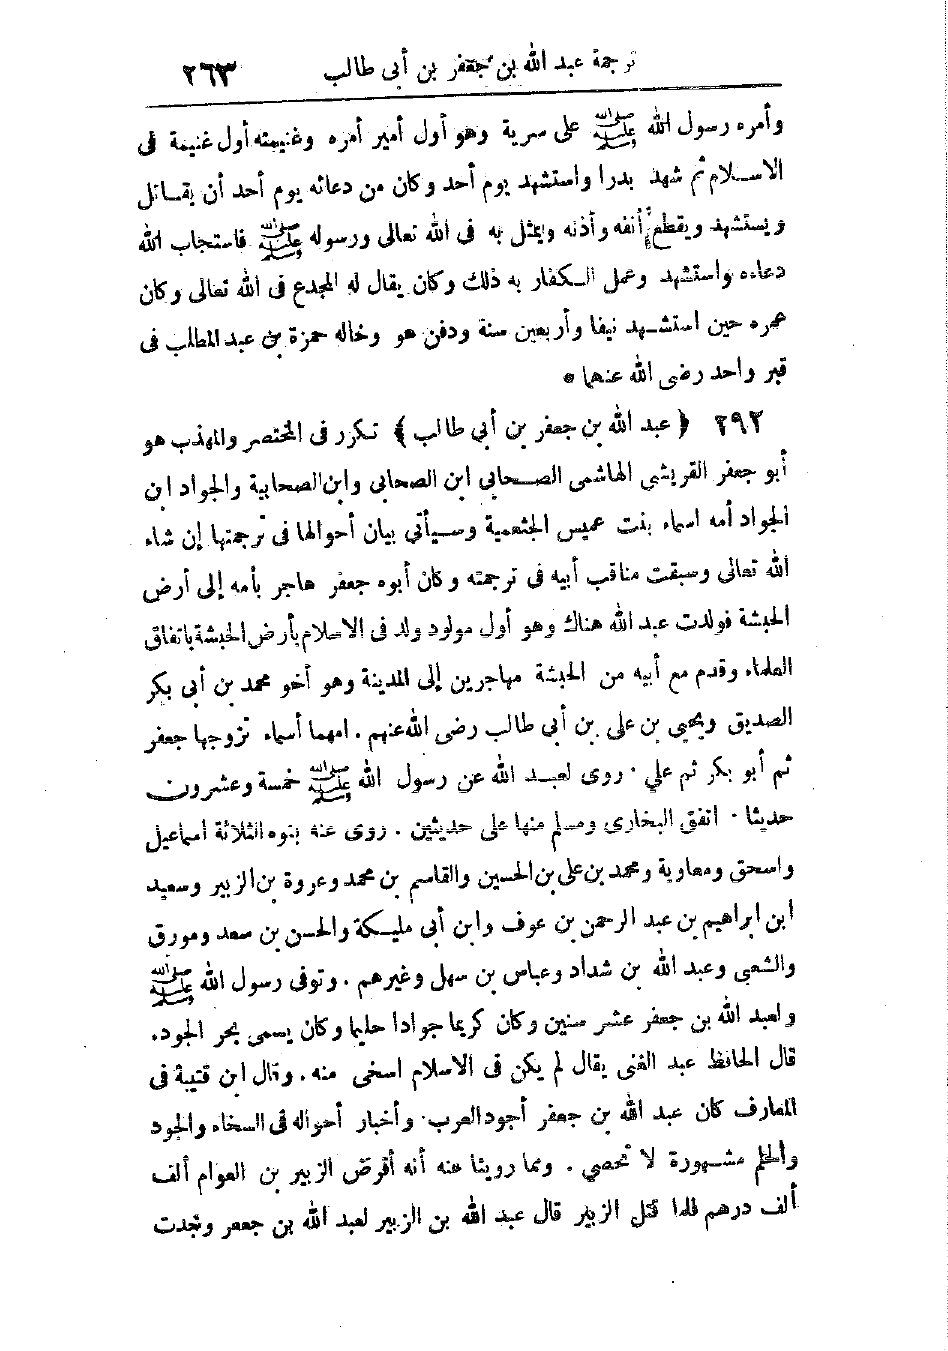 ترجمة عبد الله بن جعفر بن أبى طالب ٢٦٣
وأمره رسول الله ﷺ على سرية وهو أول أمير أمره وغنيمته أول غنيمة فى
الاسلام ثم شهد بدرا واستشهد يوم أحد وكان من دعائه يوم أحد أن يقاتل
ويستشهد ويقطع أنفه وأذنه ويمثل به فى الله تعالى ورسوله ﷺ فاستجاب الله
دعاءه واستشهد وعمل الكفار به ذلك وكان يقال له المجدع فى الله تعالى وكان
عمره حين استشهد نيفا وأربعين سنة ودفن هو وخاله حمزة بن عبد المطلب فى
قبر واحد رضى الله عنهما •
٢٩٢ ﴿ عبد الله بن جعفر بن أبي طالب ﴾ تكرر فى المختصر والمهذب هو
أبو جعفر القريشى الهاشمى الصحابي ابن الصحابي وابن الصحابية والجواد ابن
الجواد أمه اسماء بنت عميس الخثعمية وسيأتي بيان أحوالها فى ترجمتها إن شاء
الله تعالى وسبقت مناقب أبيه فى ترجمته وكان أبوه جعفر هاجر بأمه إلى أرض
الحبشة فولدت عبد الله هناك وهو أول مولود ولد فى الاسلام بأرض الحبشة باتفاق
العلماء وقدم مع أبيه من الحبشة مهاجرين إلى المدينة وهو أخو محمد بن أبى بكر
الصديق ويحيى بن على بن أبي طالب رضى الله عنهم . امهما أسماء تزوجها جعفر
ثم أبو بكر ثم علي . روى لعبد الله عن رسول الله ﷺ خمسة وعشرون
حديثا . اتفق البخارى ومسلم منها على حديثين . روى عنه بنوه الثلاثة اسماعيل
واسحق ومعاوية ومحمد بن على بن الحسين والقاسم بن محمد وعروة بن الزبير وسعيد
ابن ابراهيم بن عبد الرحمن بن عوف وابن أبى مليكة والحسن بن سعد ومورق
والشعبى وعبد الله بن شداد وعباس بن سهل وغيرهم . وتوفى رسول الله ﷺ
ولعبد الله بن جعفر عشر سنين وكان كريما جوادا حليما وكان يسمى بحر الجود.
قال الحافظ عبد الغنى يقال لم يكن فى الاسلام اسخى منه . وقال ابن قتيبة فى
المعارف كان عبد الله بن جعفر أجود العرب . وأخبار أحواله فى السخاء والجود
والحلم مشهورة لا تحصي . ومما روينا عنه أنه أقرض الزبير بن العوام ألف
ألف درهم فلما قتل الزبير قال عبد الله بن الزبير لعبد الله بن جعفر وجدت